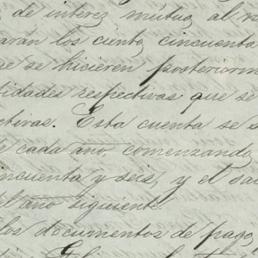 de interez mútuo al
arán los ciento cincuenta
se hicieren posteriorm
tidades respectivas que se
ctivas. Esta cuenta se
e cada año, comenzando
incuenta y seis, y el sa
el año siguiente
los documentos de pago,